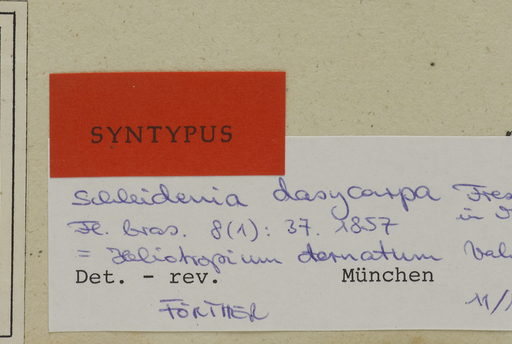 SYNTYPUS
Schleidenia dasycarpa Fres
in
Fl. bras. 8(1): 37. 1857
= Heliotropium ternatum Vahl
Det. - rev. München
FÖRTHER 11/